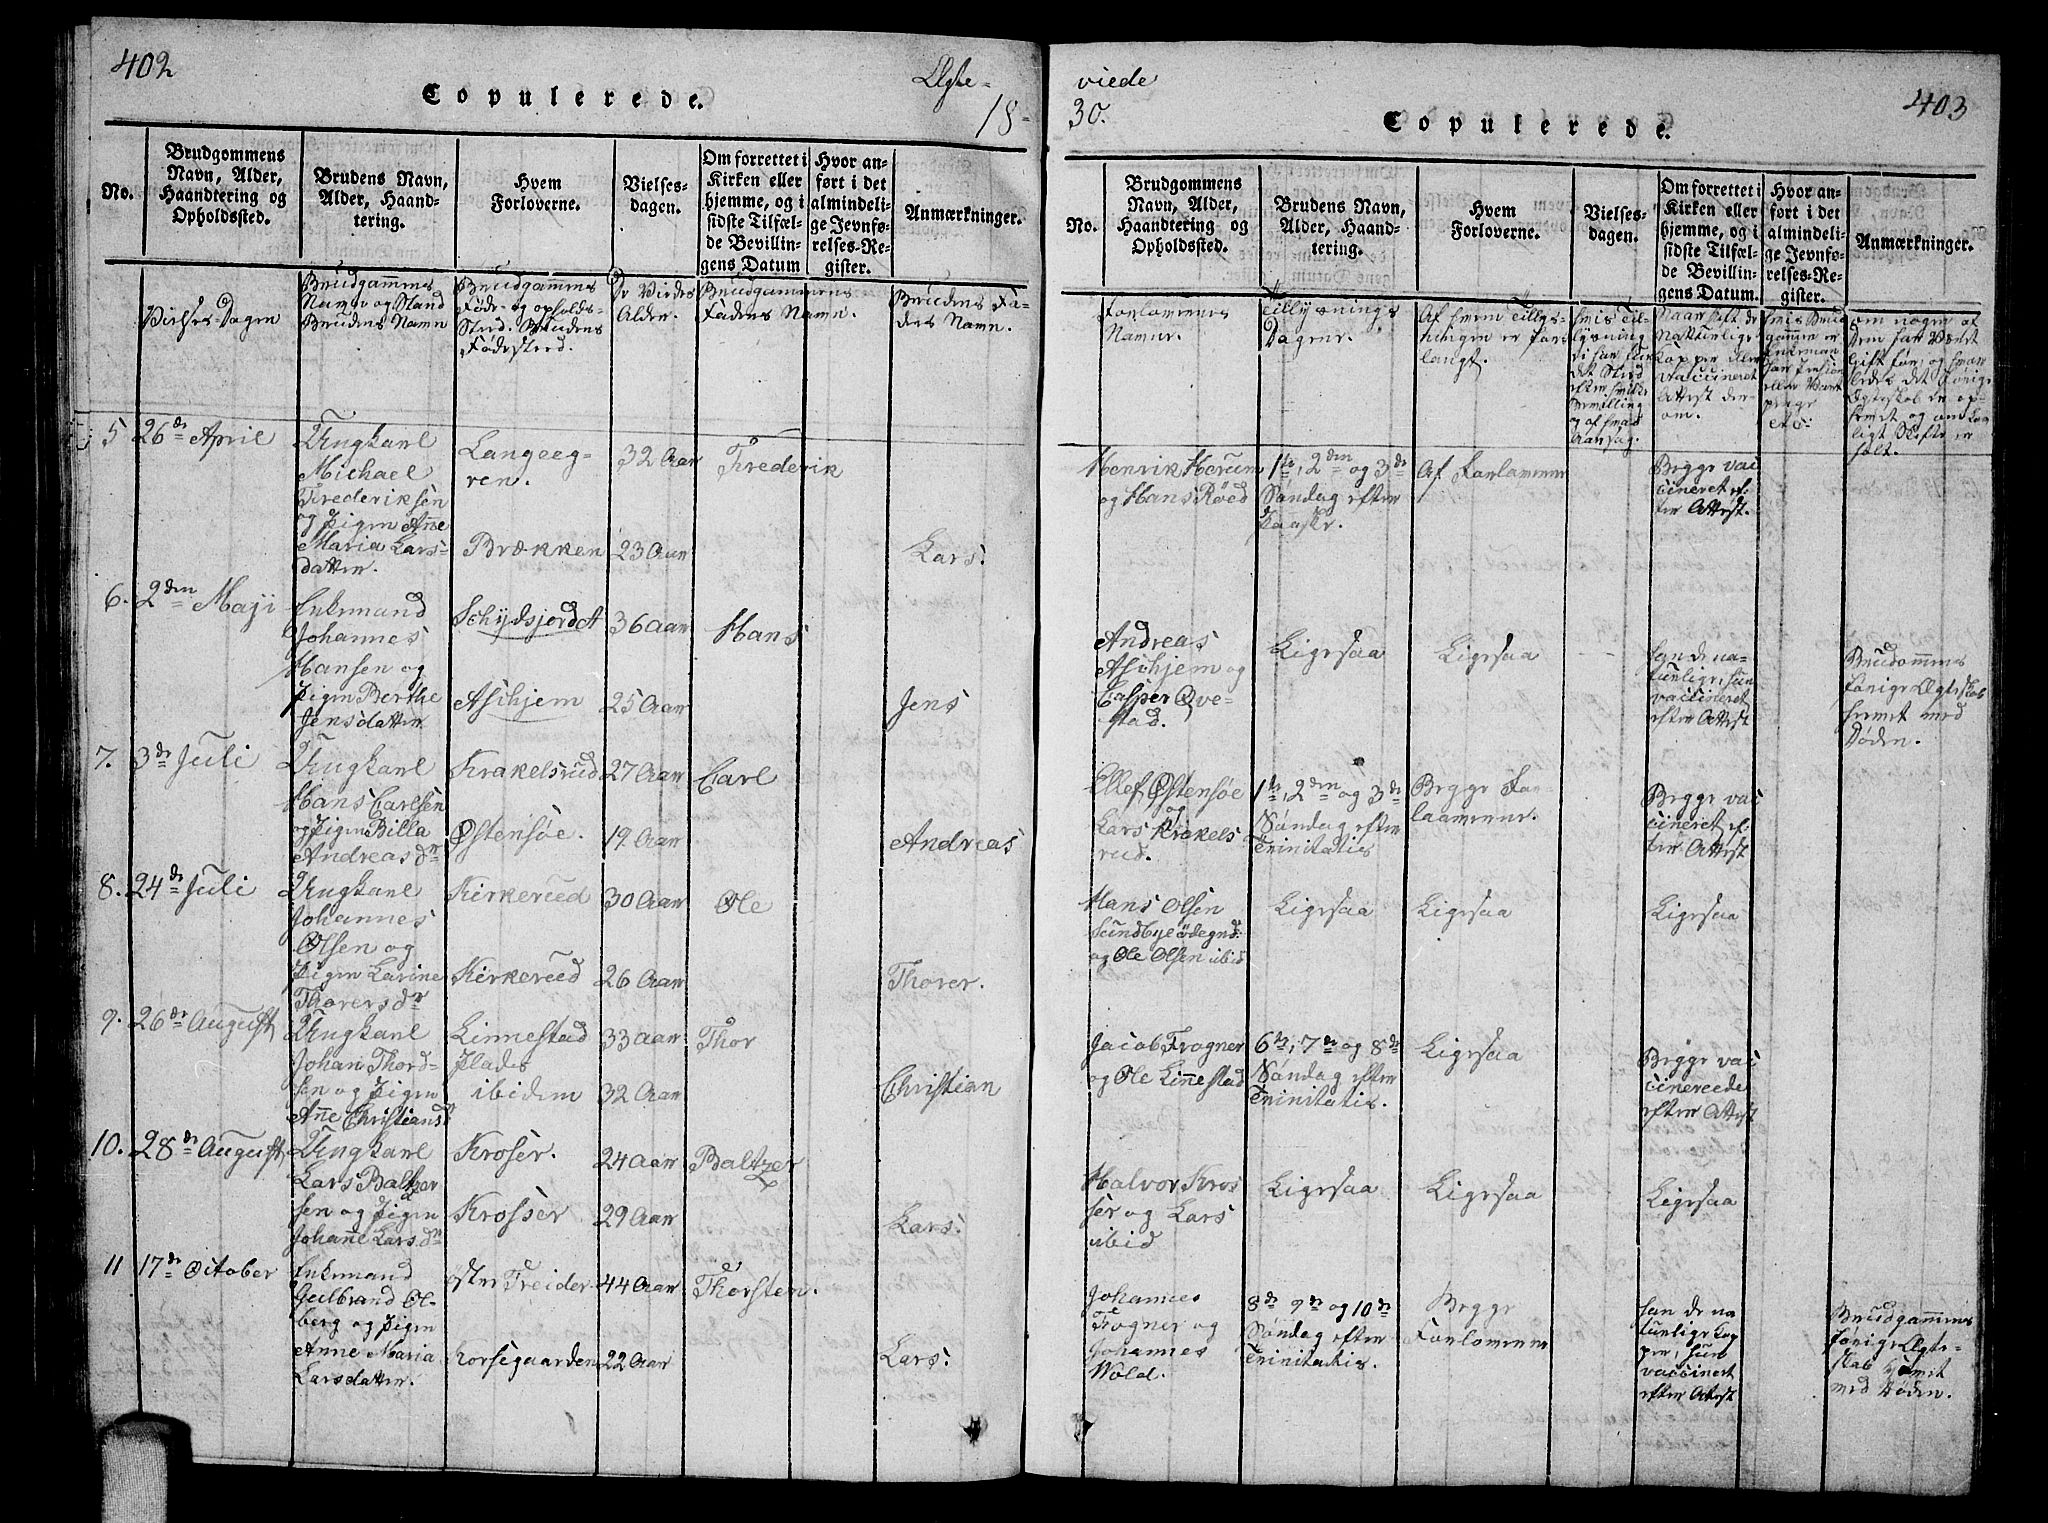 402
Copulerede.
Ægte-
18-
No.
Brudgommens
Navn, Alder,
Haandtering og
Opholdssted.
Brudens Navn,
Alder, Haand-
tering.
Hvem
Forloverne.
Vielses-
dagen.
Om forrettet i
Kirken eller
hjemme, og i
sidste Tilfæl-
de Bevillin-
gens Datum
Hvor an-
ført i det
almindeli-
ge Jevnfø-
relses-Re-
gister.
Anmærkninger.
Vielses-Dagen
Brudgammens
Navn og Stand
Brudens Navn
Brudgammens
Føde- og opholds-
Sted. Brudens
Fødested.
De Viedes
Alder.
Brudgammens
Faders Navn.
Brudens Fa-
ders Navn.
5 26de April
Ungkarl
Michael
Frederiksen
og Pigen Anne
Maria Lars-
datter.
Langeeg-
ren.
Brækken
32 Aar
23 Aar
Frederik
Lars.
6. 2den Maji
Enkemand
Johannes
Hansen og
Pigen Berthe
Jensdatter
Schydsjordet
Aschjem
36 Aar
25 Aar
Hans
Jens
7. 3de Juli
Ungkarl
Hans Carlsen
og Pigen Billa
Andreasdr
Krakelsrud
Østensøe.
27 Aar
19 Aar
Carl
Andreas
8. 24de Juli
Ungkarl
Johannes
Olsen og
Pigen Larine
Thorersdr
Kirkerud
Kirkerud
30 Aar
26 Aar
Ole
Thorer.
9. 26de August
Ungkarl
Johan Thord-
sen og Pigen
Anne Christiansdr
Linnestad
Plads
ibidem
33 Aar
32 Aar
Thor
Christian
10. 28de August
Ungkarl
Lars Baltzer
sen og Pigen
Johanne Larsdr
Kroser.
Krosser
24 Aar
29 Aar
Baltzer
Lars.
11 17de October
Enkemand
Gulbrand Ol-
berg og Pigen
Anne Maria
Larsdatter.
øster Freider
Korsegaarden
44 Aar
22 Aar
Thorsten.
Lars.
viede
30.
Copulerede.
403
No.
Brudgommens
Navn, Alder,
Haandtering og
Opholdssted.
Brudens Navn,
Alder, Haand-
tering.
Hvem
Forloverne.
Vielses-
dagen.
Om forrettet i
Kirken eller
hjemme, og i
sidste Tilfæl-
de Bevillin-
gens Datum.
Hvor an-
ført i det
almindeli-
ge Jevnfø-
relses-Re-
gister.
Anmærkninger.
Forlovernes
Navne.
Tillysnings
Dagene.
Af hvem Tillys-
ningen er for-
langt.
Hvis Til-
lysning
ei har fun
det Sted
efter hvilken
Bevilling
og af hvad
Aarsag.
Naar havt de
Naturlige
Kopper eller
vaccineret
Attest der-
om.
Hvis Brud
gammen er
Enkemand
etc.
om nogen af
Dem har været
gift før, og hvor
ledes det forrige
Ægteskab er op-
hævet og om lov
ligt Skifte er
holt.
Henrik Herum
og Hans Røed
1ste, 2den og 3de
Søndag efter
Paaske.
Af Forloverne
Begge vac
cineret ef-
ter Attest.
Andreas
Aschjem og
Casper Qve-
stad.
Ligesaa
Ligesaa
han de na-
turlige, hun
vaccineret
efter Attest
Brudommens
forrige Ægteskab
hævet med
Døden.
Ellef Østensøe
og
Lars Krakels
rud.
1ste, 2den og 3de
Søndag efter
Trinitatis
Begge For-
loverne.
Begge vac
cineret ef-
ter Attest
Hans Olsen
Sundbyeødegrd:
og Ole Olsen ibid
Ligesaa
Ligesaa
Ligesaa
Jacob Frogner
og Ole Linnestad
6te, 7de og 8de
Søndag efter
Trinitatis.
Ligesaa
Begge vac
cinerede
efter Attest
Halvor Kros
ser og Lars
ibid
Ligesaa
Ligesaa
Ligesaa
Johannes
Frogner og
Johannes
Wold.
8de 9de og 10de
Søndag efter
Trinitatis.
Begge
Forloverne
han de na
turlige Kop
per, hun
vaccinert
efter Attest
Brudgammens
forrige Ægte-
skab hævet
med Døden.